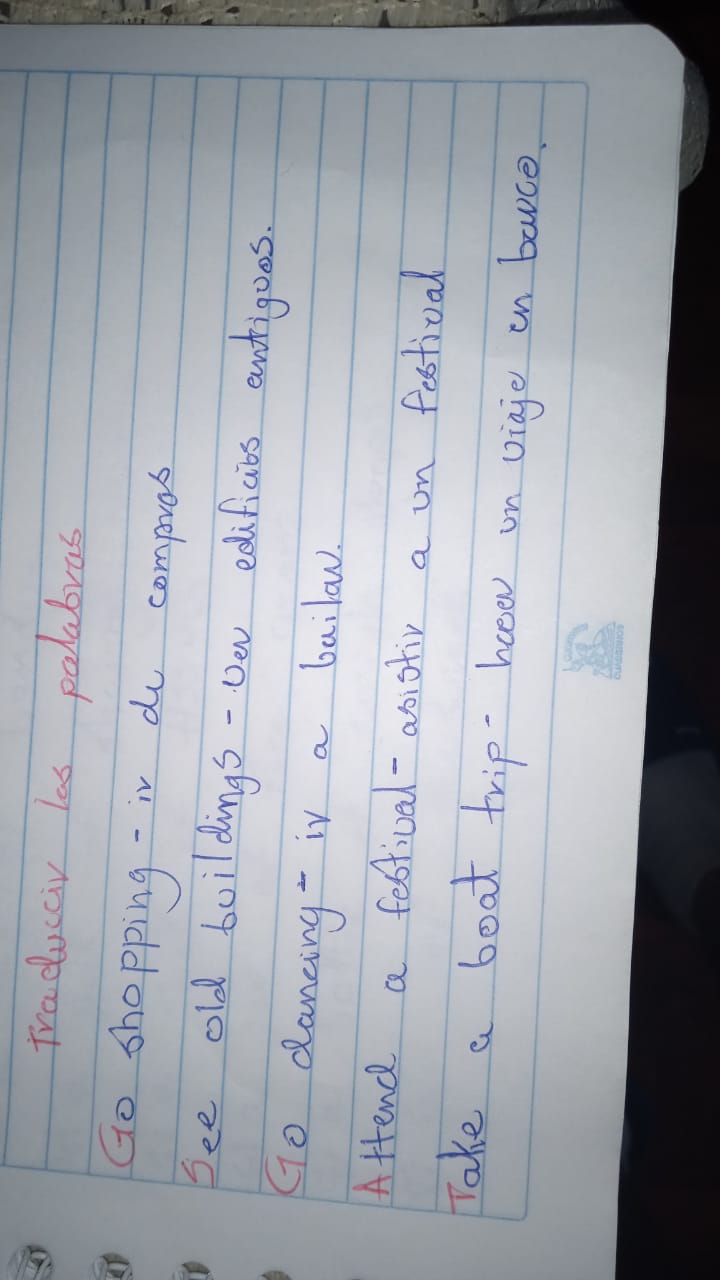 Traduccir las palabras
Go shopping - ir de compras
See old buildings - ver edificios antiguos.
Go dancing - ir a bailar.
Attend a festival - asistir a un festival
Take a boat trip - hacer un viaje en barco.